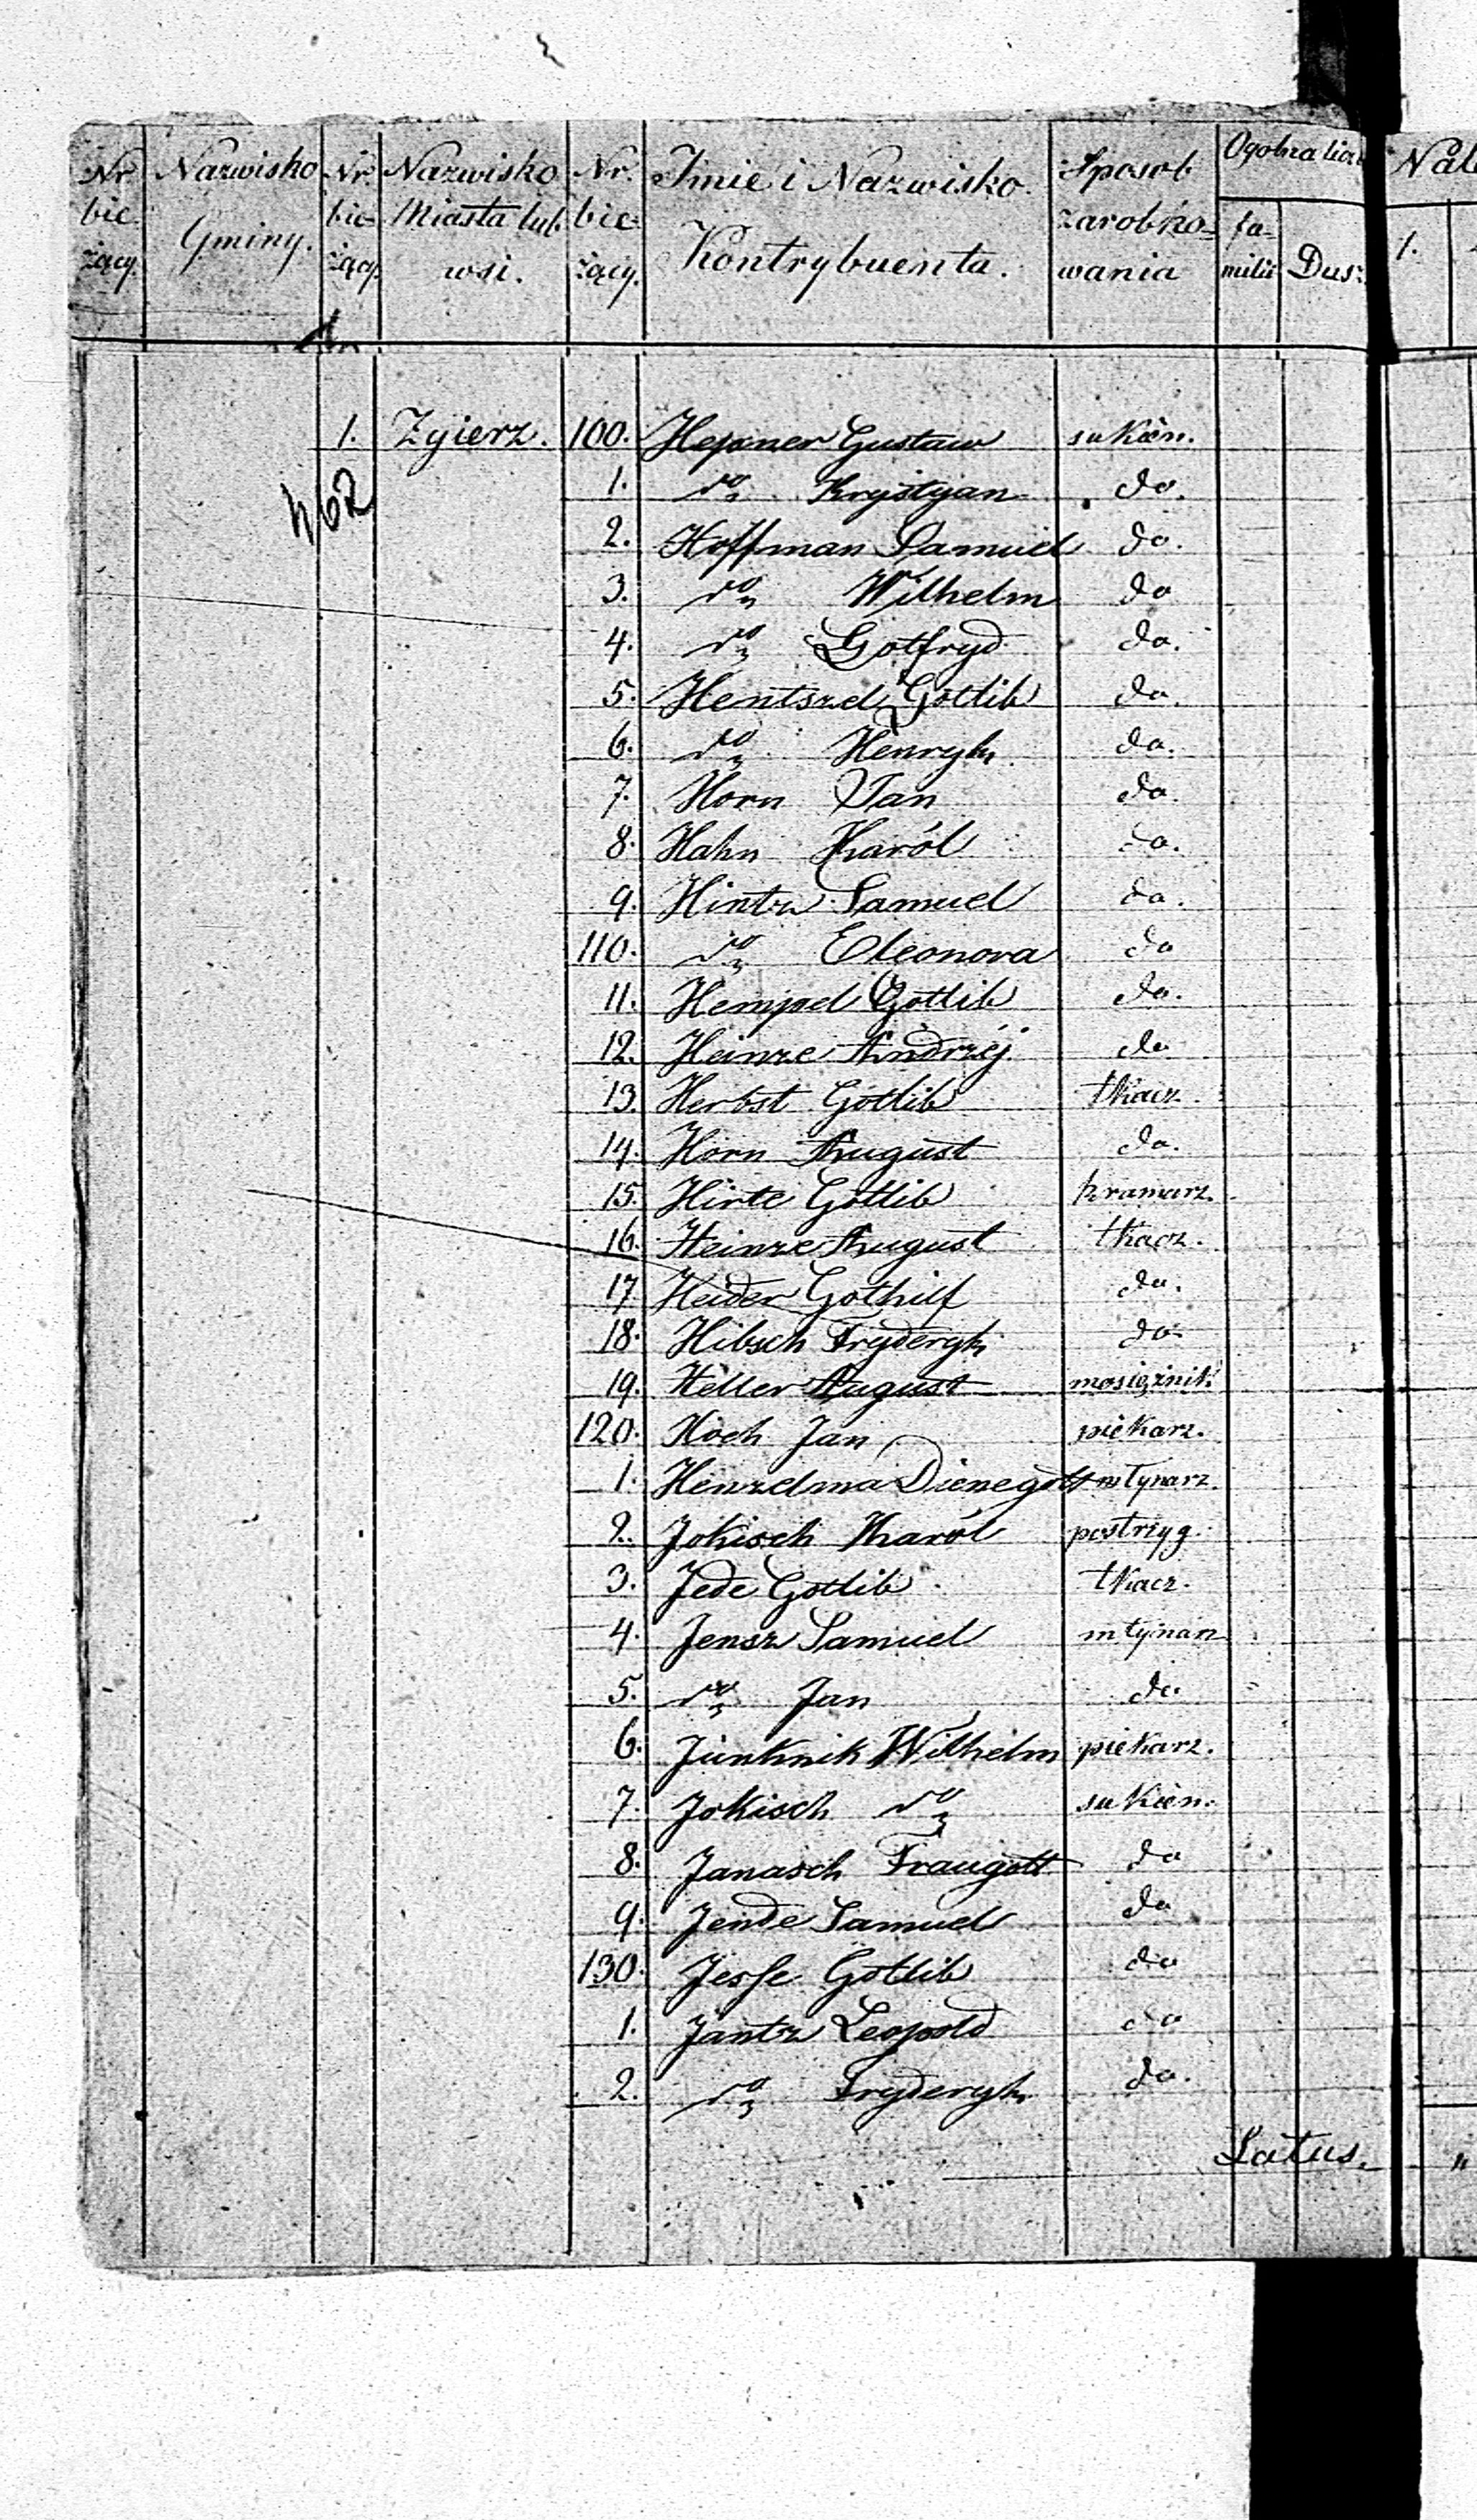 Nr bieżący. Nazwisko Gminy. Nr. bieżący. Nazwisko Miasta lub wsi. Nr. bieżący. Imie i Nazwisko Kontrybuenta. Sposob zarobkowania Ogolna familii Dusz
1.
1. Zgierz. 100. Hepner Gustaw sukien.
462
1. do Krystyan do.
2. Hoffman Samuel do.
3. do Wilhelm do
4. do Gotfryd do.
5. Hentszel Gotlib do.
6. do Henryk do.
7. Horn Jan do.
8. Hahn Karól do.
9. Hintz Samuel do.
110. do Eleonora do
11. Hempel Gotlib do.
12. Heinze Andrzéj do
13. Herbst Gotlib tkacz.
14. Horn August do.
15. Hirte Gotlib kramarz.
16. Heinze August tkacz.
17. Heider Gothilf do.
18. Hibsch Fryderyk do
19. Heller August mosiężnik
120. Hoch Jan piekarz.
1. Henzelma Dienegott młynarz.
2. Jokisch Karól postrzyg.
3. Jede Gotlib tkacz.
4. Jensz Samuel młynarz
5. do Jan do
6. Junknik Wilhelm piekarz.
7. Jokisch do sukien.
8. Janasch Traugott do
9. Jende Samuel do
130. Jesse Gotlib do
1. Jantz Leopold do
2. do Fryderyk do.
Latus. "